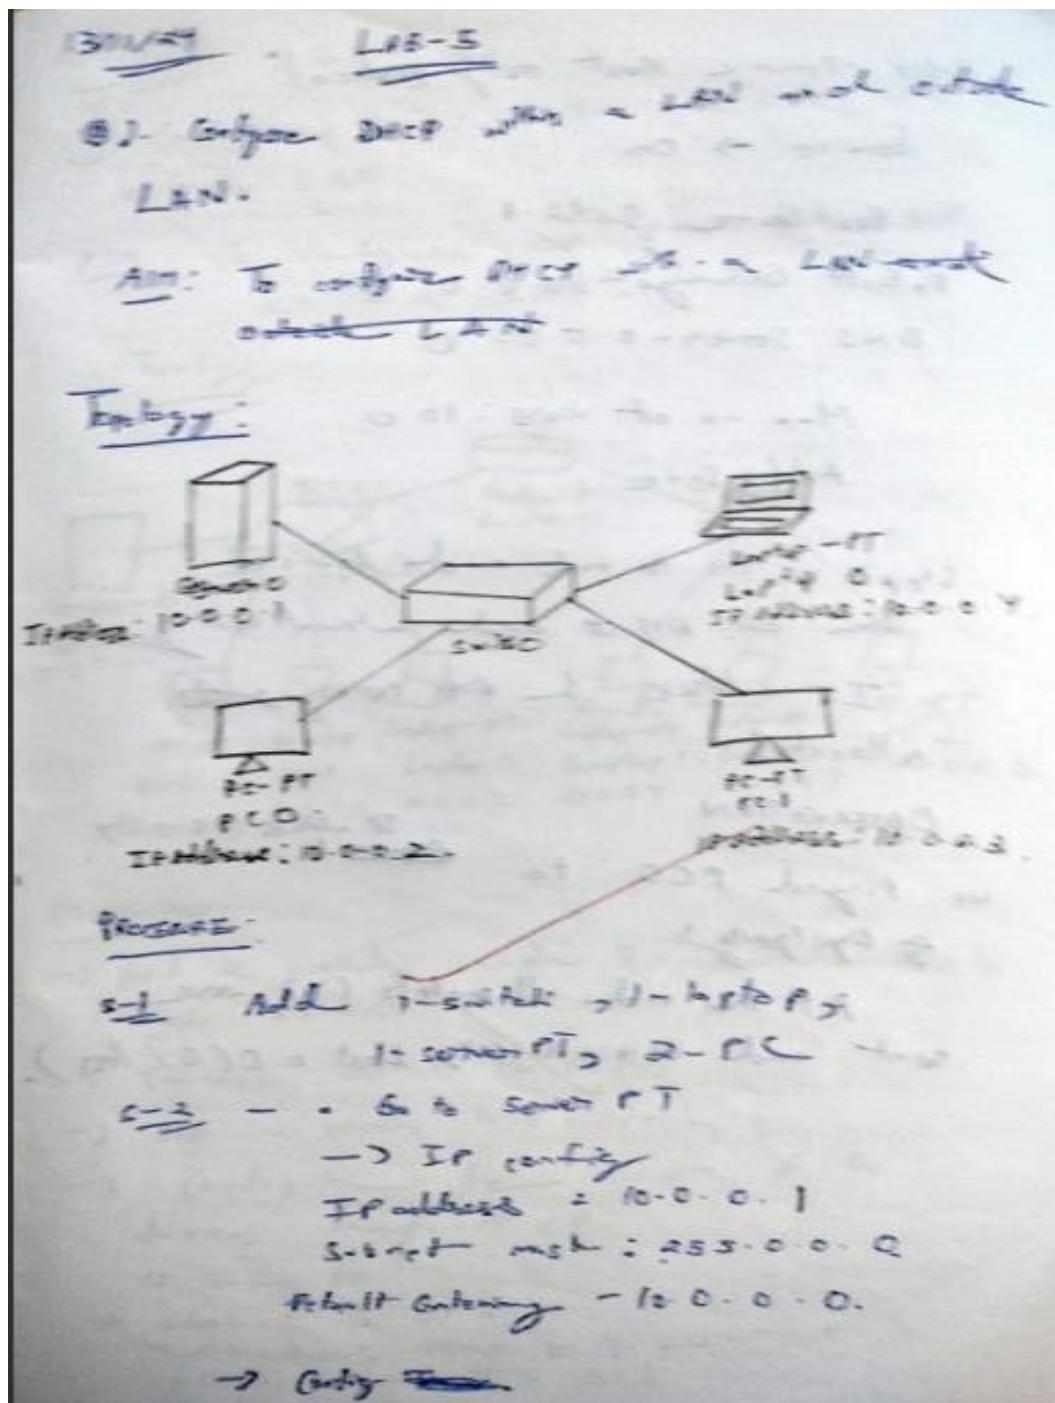 LAB-5
1. Configure DHCP within a LAN and outside
LAN.
Aim: To configure DHCP with a LAN and
outside LAN
Topology:
Server 0
IP Address: 10.0.0.1
Laptop-PT
Laptop 0
IP Address: 10.0.0.4
Switch0
PC-PT
PC0
IP Address: 10.0.0.2.
PC-PT
PC1
IP Address: 10.0.0.3.
PROCEDURE:
S-1 Add 1-switch, 1-laptop,
1-server PT, 2-PC
S-2 - . Go to Server PT
-> IP config
IP address = 10.0.0.1
Subnet mask : 255.0.0.0
Default Gateway - 10.0.0.0.
-> Config